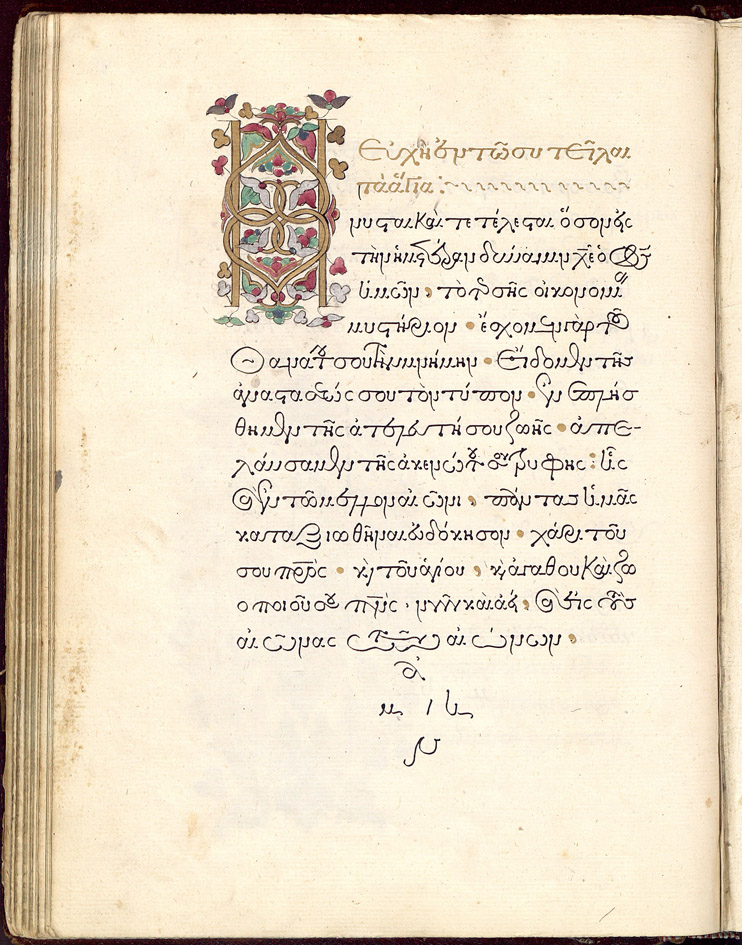 Εὐχὴ ἐν τῷ συστεῖλαι
τὰ ἅγια:
Ηνυσται καὶ τετέλεσται ὅσον εἰς
τὴν ἡμετέραν δύναμιν χ(ριστ)ὲ ὁ θ(εὸ)ς
ἡμῶν, τὸ τῆς σῆς οἰκονομί(ας)
μυστήριον · ἔσχομεν γὰρ τοῦ
θανάτου σου τὴν μνήμην · εἴδομεν τῆς
ἀναστάσεώς σου τὸν τύπον · ἐνεπλήσ
θημεν τῆς ἀτελευτήτου σου ζωῆς · ἀπε-
λαύσαμεν τῆς ἀκενώτου σου τρυφῆς : ἧς
ἐν τῷ μέλλοντι αἰῶνι, πάντας ἡμᾶς
καταξιωθῆναι εὐδόκησον · χάριτι τοῦ
σου π(ατ)ρὸς · καὶ τοῦ ἁγίου, καὶ ἀγαθοῦ καὶ ζω
οποιοῦ σου πν(εύματο)ς · νῦν καὶ ἀεί, καὶ εἰς τοὺς
αἰῶνας τῶν αἰώνων,
ἀ
μ ή
ν